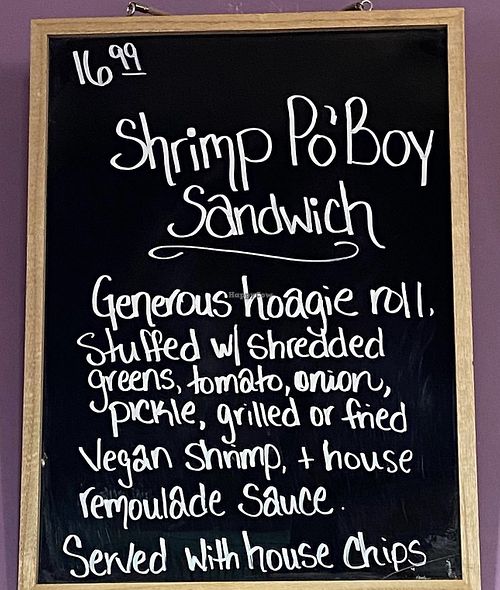 16.99
Shrimp Po'Boy
Sandwich
Generous hoagie roll.
Stuffed w/ shredded
greens, tomato, onion,
pickle, grilled or fried
Vegan shrimp, + house
remoulade sauce.
Served with house chips